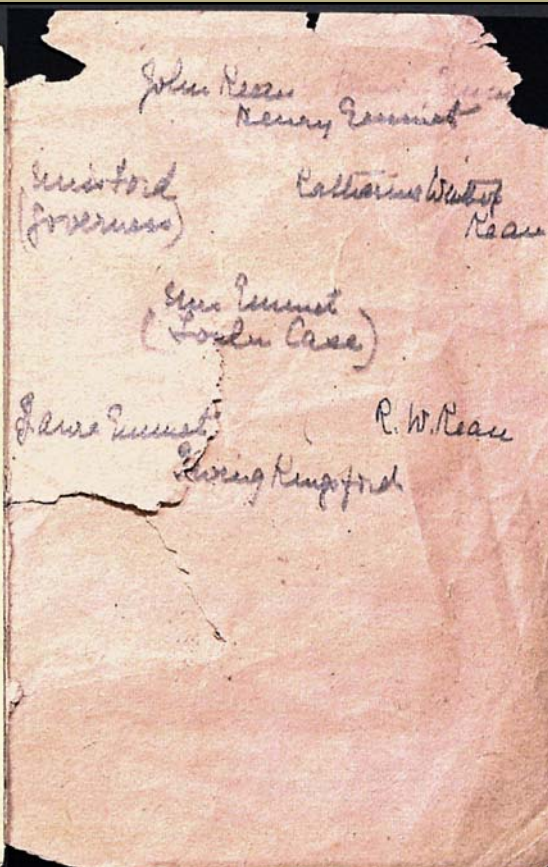 John Kean
Henry Emmet
Miss Ford
(Governess)
Katharine Winthrop
Kean
Mrs Emmet
Case)
Emmet
R. W. Kean
Irving Kingsford